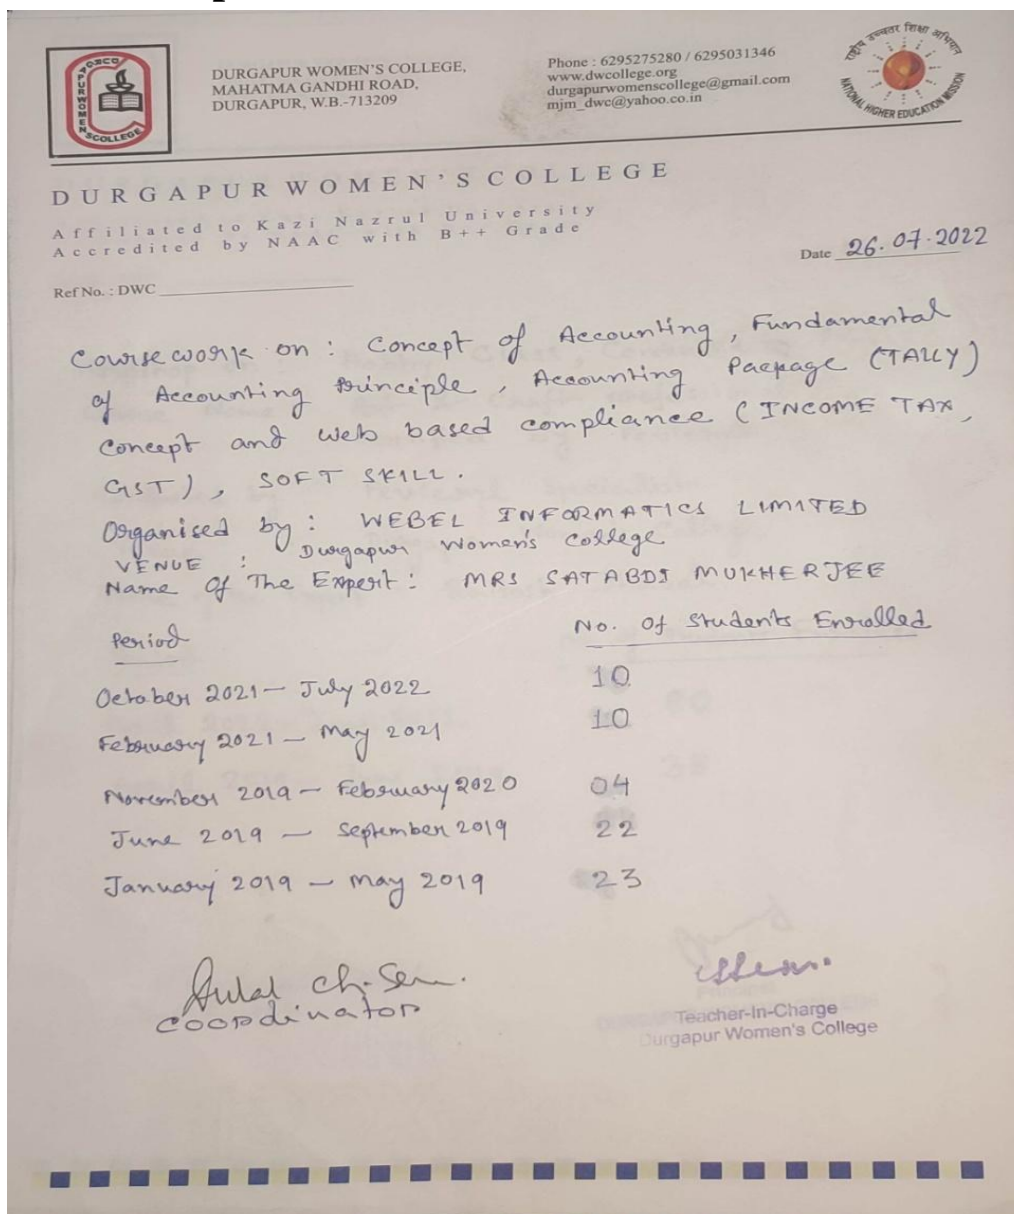 DURGAPUR WOMEN'S COLLEGE,
MAHATMA GANDHI ROAD,
DURGAPUR, W.B.-713209
Phone : 6295275280 / 6295031346
www.dwcollege.org
durgapurwomenscollege@gmail.com
mjm_dwc@yahoo.co.in
राष्ट्रीय उच्चतर शिक्षा अभियान
NATIONAL HIGHER EDUCATION MISSION
DURGAPUR WOMEN'S COLLEGE
Affiliated to Kazi Nazrul University
Accredited by NAAC with B++ Grade
Date 26.07.2022
Ref No. : DWC
Course work on : Concept of Accounting, Fundamental
of Accounting Principle, Accounting Package (TALLY)
Concept and web based compliance (INCOME TAX,
GST), SOFT SKILL.
Organised by : WEBEL INFORMATICS LIMITED
VENUE : Durgapur Women's College
Name Of The Expert : MRS SATABDI MUKHERJEE
Period No. Of Students Enrolled
October 2021 - July 2022 10
February 2021 - May 2021 10
November 2019 - February 2020 04
June 2019 - September 2019 22
January 2019 - May 2019 23
Dulal Ch. Sen.
Coordinator
Teacher-In-Charge
Durgapur Women's College